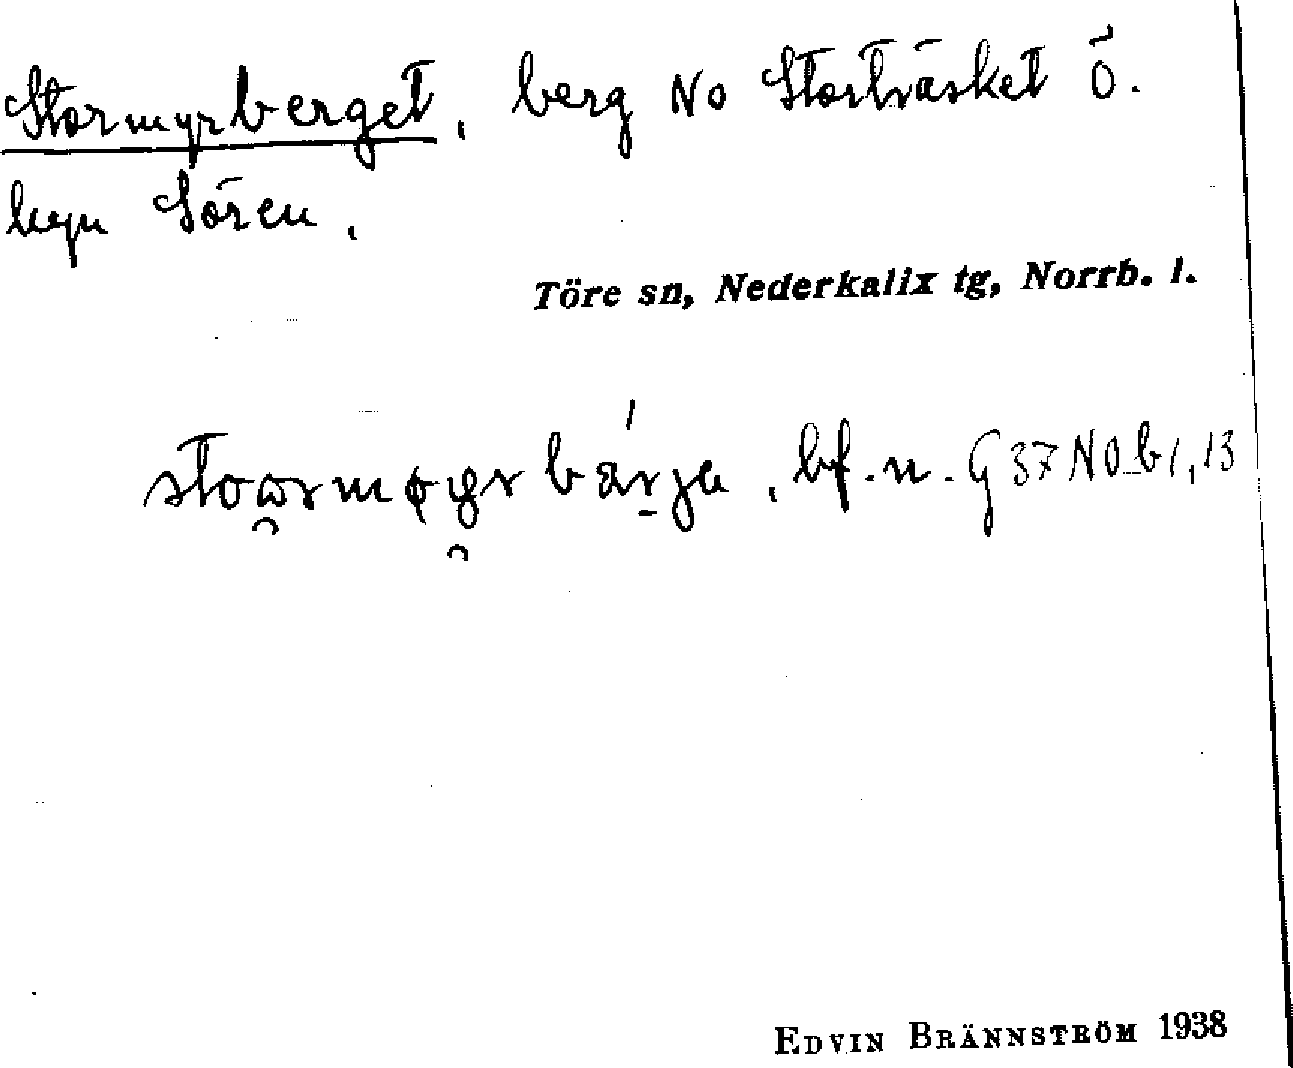 Stormyrberget, berg NO Storträsket Ö.
byn Sören.
Töre sn, Nederkalix tg, Norrb. l.
bf. n. G 37 NO b 1, 13
EDVIN BRÄNNSTRÖM 1938